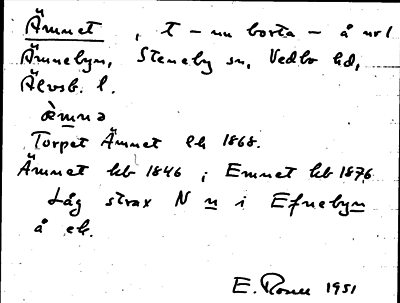 Ämnet, t - nu borta - å nr 1
Ämnebyn, Steneby sn, Vedbo hd,
Älvsb. l.
ä̀mnə
Torpet Ämnet lh 1868.
Ämnet hb 1846, Emnet hb 1876
Låg strax N n i Efnebyn
å ek.
E. Rosell 1951